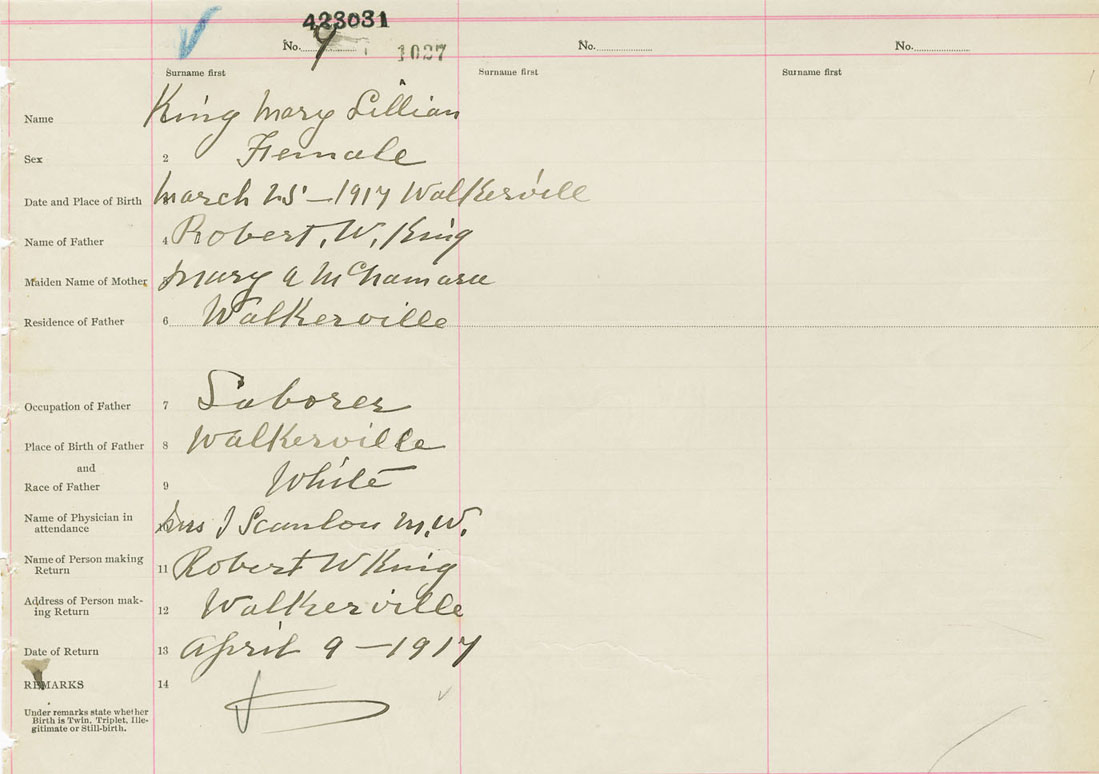 423031
No. 9 1027 No. No.
Surname first Surname first Surname first
Name King Mary Lillian
Sex 2 Female
Date and Place of Birth March 25 - 1917 Walkerville
Name of Father 4 Robert. W. King
Maiden Name of Mother Mary A McNamara
Residence of Father 6 Walkerville
Occupation of Father 7 Laborer
Place of Birth of Father 8 Walkerville
and
Race of Father 9 White
Name of Physician in
attendance 10 Mrs J Scanlon M.W.
Name of Person making
Return 11 Robert W King
Address of Person mak-
ing Return 12 Walkerville
Date of Return 13 April 9 - 1917
REMARKS 14
Under remarks state whether
Birth is Twin, Triplet, Ille-
gitimate or Still-birth.